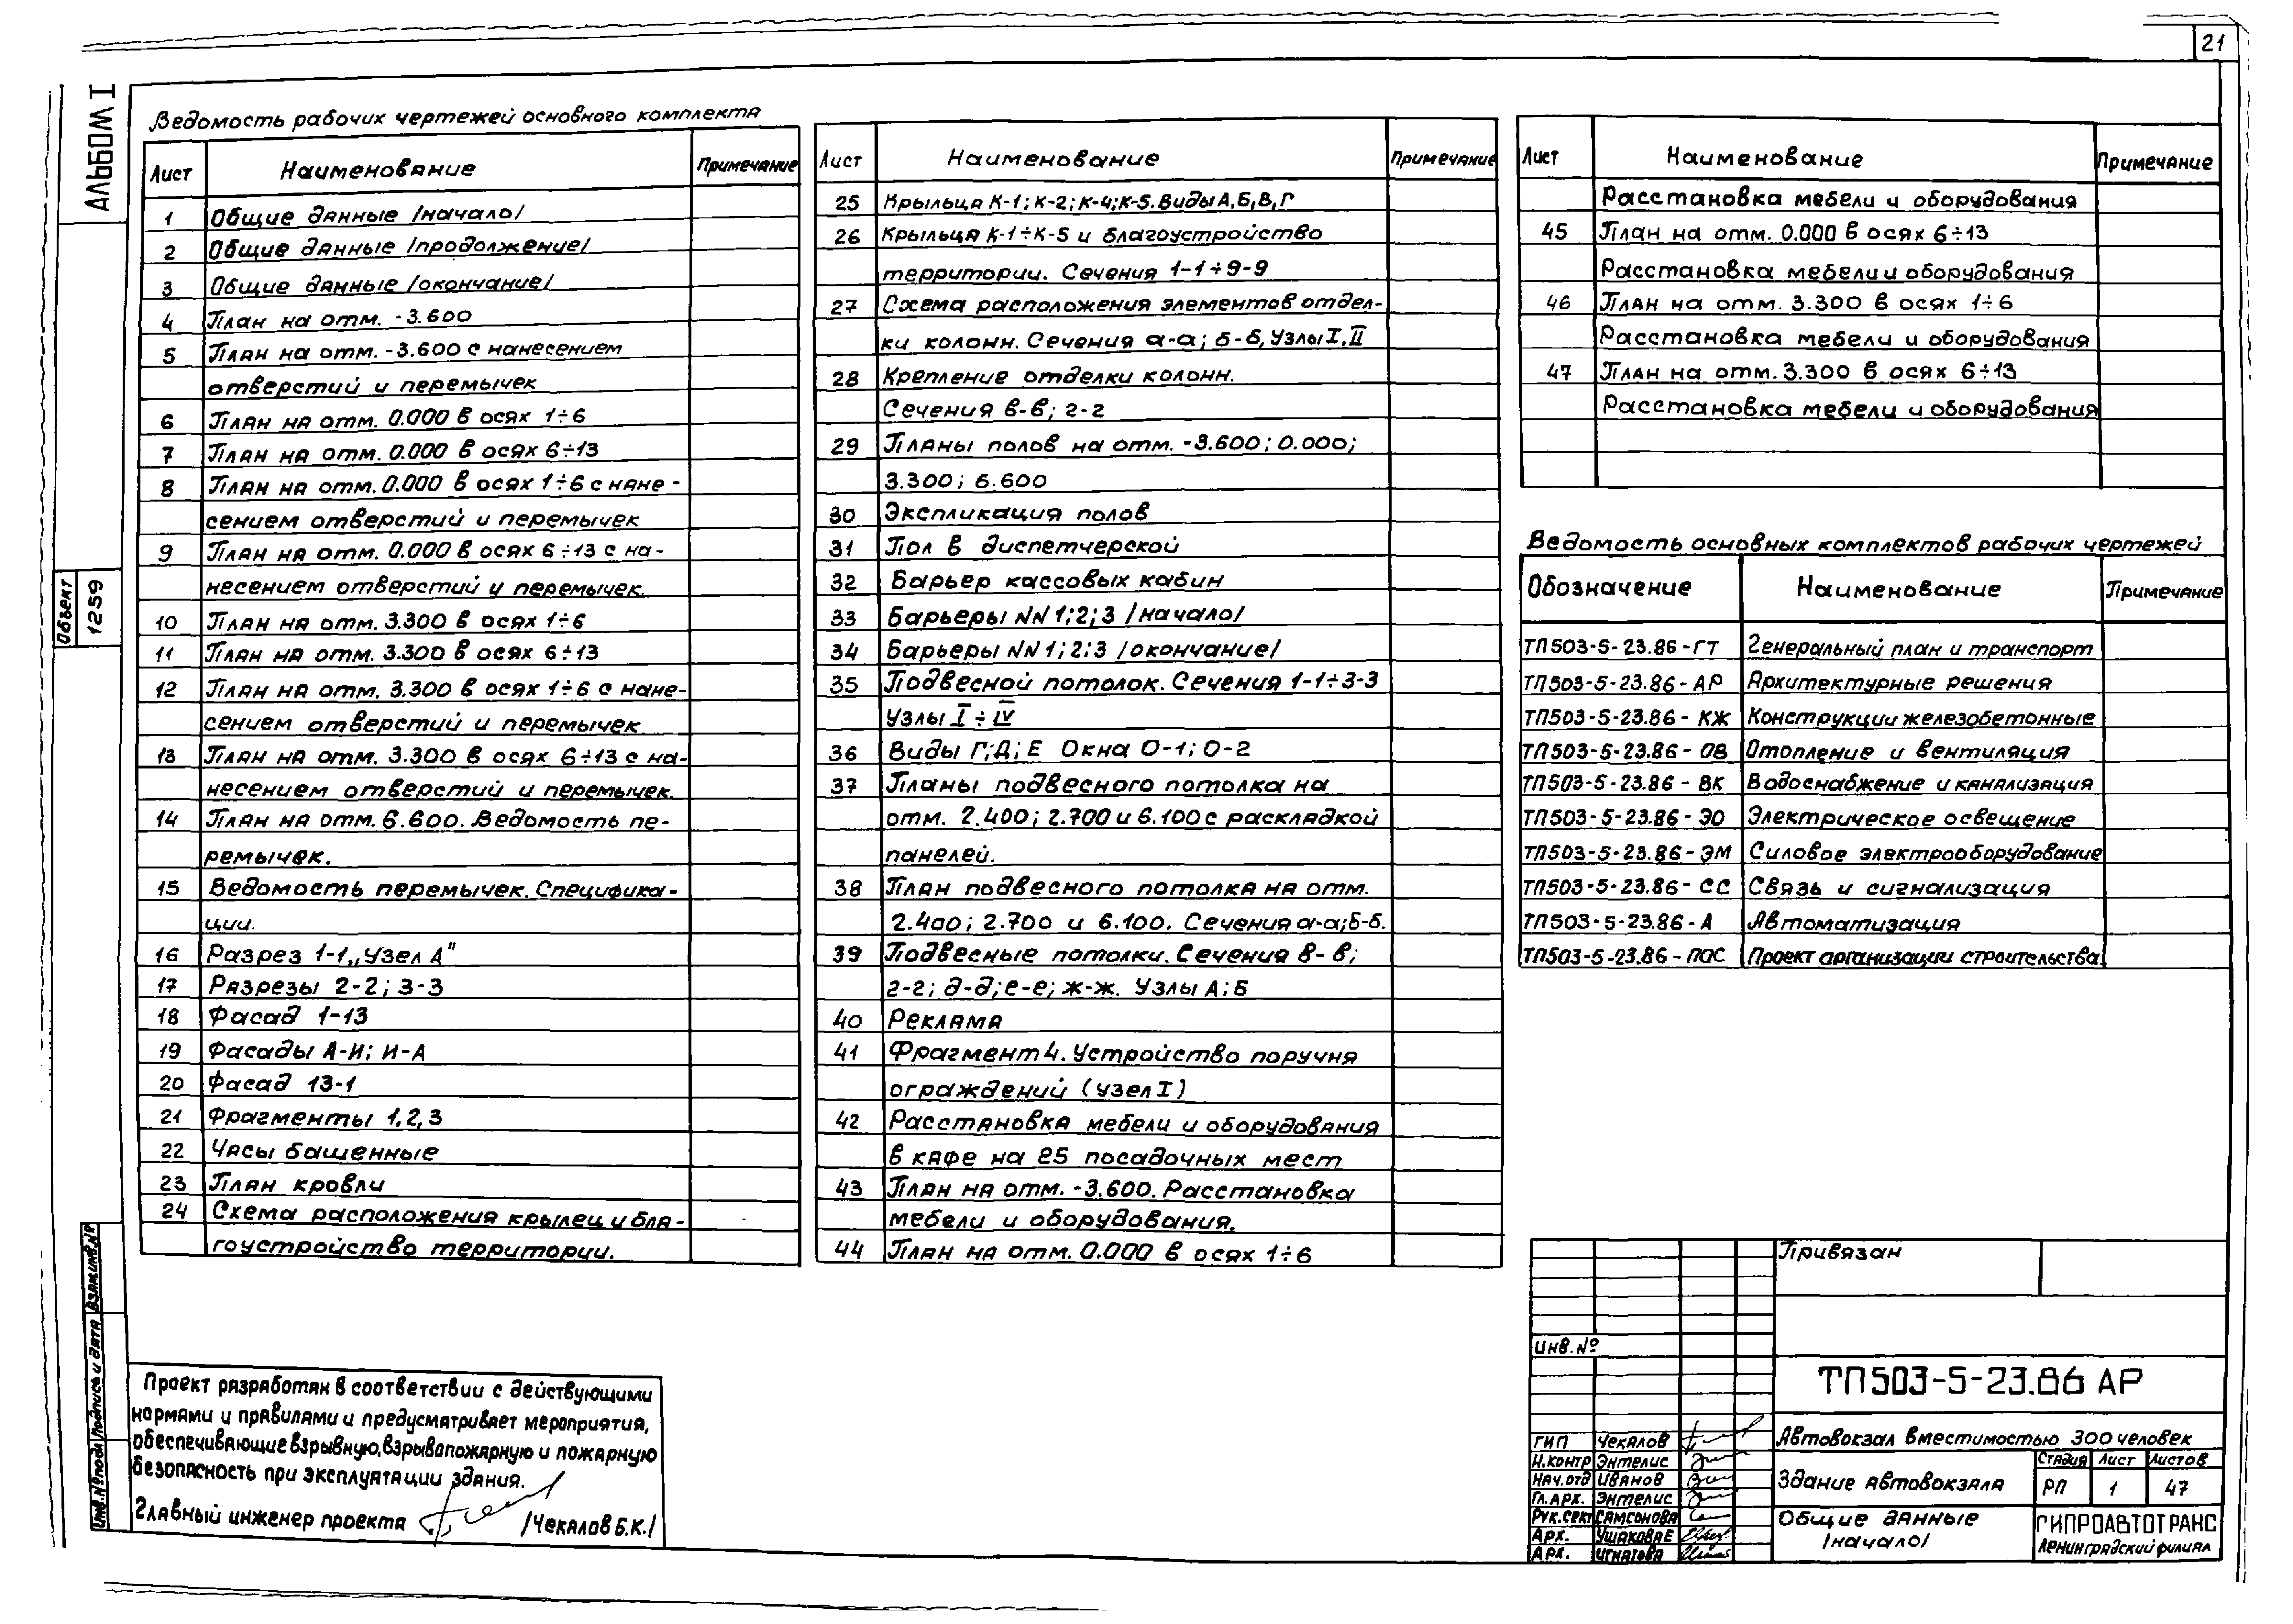 21
Альбом I
Объект
1259
Взам.инв.№
Подпись и дата
Инв.№подл
Ведомость рабочих чертежей основного комплекта
Лист Наименование Примечание
1 Общие данные /начало/
2 Общие данные /продолжение/
3 Общие данные /окончание/
4 План на отм. -3.600
5 План на отм. -3.600 с нанесением
отверстий и перемычек
6 План на отм. 0.000 в осях 1÷6
7 План на отм. 0.000 в осях 6÷13
8 План на отм. 0.000 в осях 1÷6 с нане-
сением отверстий и перемычек
9 План на отм. 0.000 в осях 6÷13 с на-
несением отверстий и перемычек.
10 План на отм. 3.300 в осях 1÷6
11 План на отм. 3.300 в осях 6÷13
12 План на отм. 3.300 в осях 1÷6 с нане-
сением отверстий и перемычек
13 План на отм. 3.300 в осях 6÷13 с на-
несением отверстий и перемычек.
14 План на отм. 6.600. Ведомость пе-
ремычек.
15 Ведомость перемычек. Специфика-
ции.
16 Разрез 1-1 „Узел А"
17 Разрезы 2-2; 3-3
18 Фасад 1-13
19 Фасады А-И; И-А
20 Фасад 13-1
21 Фрагменты 1,2,3
22 Часы башенные
23 План кровли
24 Схема расположения крылец и бла-
гоустройство территории.
Лист Наименование Примечание
25 Крыльца К-1; К-2; К-4; К-5. Виды А,Б,В,Г
26 Крыльца К-1÷К-5 и благоустройство
территории. Сечения 1-1÷9-9
27 Схема расположения элементов отдел-
ки колонн. Сечения а-а; б-б, Узлы I, II
28 Крепление отделки колонн.
Сечения в-в; г-г
29 Планы полов на отм. -3.600; 0.000;
3.300; 6.600
30 Экспликация полов
31 Пол в диспетчерской
32 Барьер кассовых кабин
33 Барьеры NN 1;2;3 /начало/
34 Барьеры NN 1;2;3 /окончание/
35 Подвесной потолок. Сечения 1-1÷3-3
Узлы I ÷ IV
36 Виды Г; Д; Е Окна О-1; О-2
37 Планы подвесного потолка на
отм. 2.400; 2.700 и 6.100 с раскладкой
панелей.
38 План подвесного потолка на отм.
2.400; 2.700 и 6.100. Сечения а-а; б-б.
39 Подвесные потолки. Сечения в-в;
г-г; д-д; е-е; ж-ж. Узлы А; Б
40 Реклама
41 Фрагмент 4. Устройство поручня
ограждений (узел I)
42 Расстановка мебели и оборудования
в кафе на 25 посадочных мест
43 План на отм. -3.600. Расстановка
мебели и оборудования.
44 План на отм. 0.000 в осях 1÷6
Лист Наименование Примечание
Расстановка мебели и оборудования
45 План на отм. 0.000 в осях 6÷13
Расстановка мебели и оборудования
46 План на отм. 3.300 в осях 1÷6
Расстановка мебели и оборудования
47 План на отм. 3.300 в осях 6÷13
Расстановка мебели и оборудования
Ведомость основных комплектов рабочих чертежей
Обозначение Наименование Примечание
ТП503-5-23.86-ГТ Генеральный план и транспорт
ТП503-5-23.86-АР Архитектурные решения
ТП503-5-23.86-КЖ Конструкции железобетонные
ТП503-5-23.86-ОВ Отопление и вентиляция
ТП503-5-23.86-ВК Водоснабжение и канализация
ТП503-5-23.86-ЭО Электрическое освещение
ТП503-5-23.86-ЭМ Силовое электрооборудование
ТП503-5-23.86-СС Связь и сигнализация
ТП503-5-23.86-А Автоматизация
ТП503-5-23.86-ПОС Проект организации строительства
Проект разработан в соответствии с действующими
нормами и правилами и предусматривает мероприятия,
обеспечивающие взрывную, взрывопожарную и пожарную
безопасность при эксплуатации здания.
Главный инженер проекта /Чекалов Б.К./
Привязан
Инв.№
ТП503-5-23.86 АР
ГИП Чекалов
Н.контр Энтелис
Нач.отд Иванов
Гл.арх. Энтелис
Рук.сект Самсонова
Арх. Ушакова Е
Арх. Игнатова
Автовокзал вместимостью 300 человек
Здание автовокзала
Стадия Лист Листов
РП 1 47
Общие данные
/начало/
ГИПРОАВТОТРАНС
Ленинградский филиал